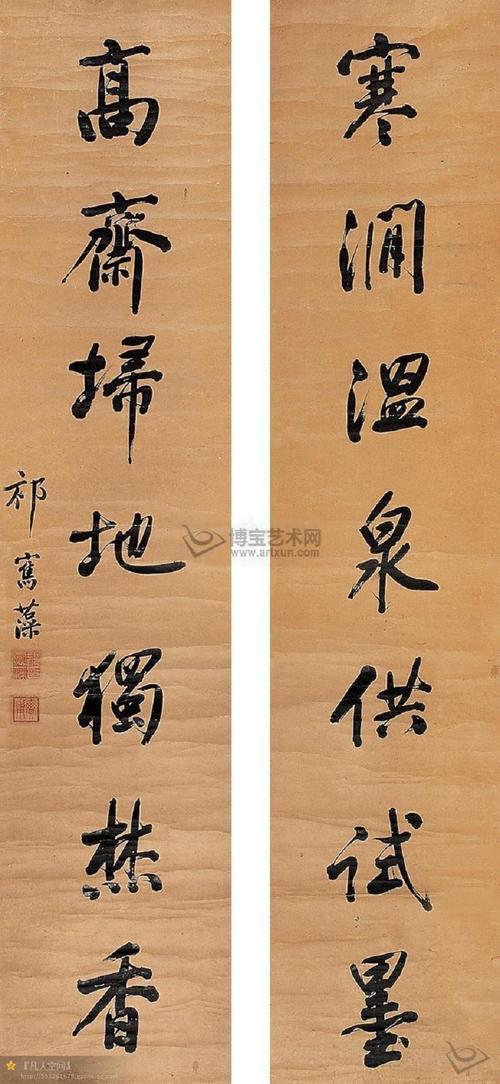 寒澗溫泉供試墨
高齋掃地獨焚香
祁寯藻
博宝艺术网
www.artxun.com
『凡人空间』